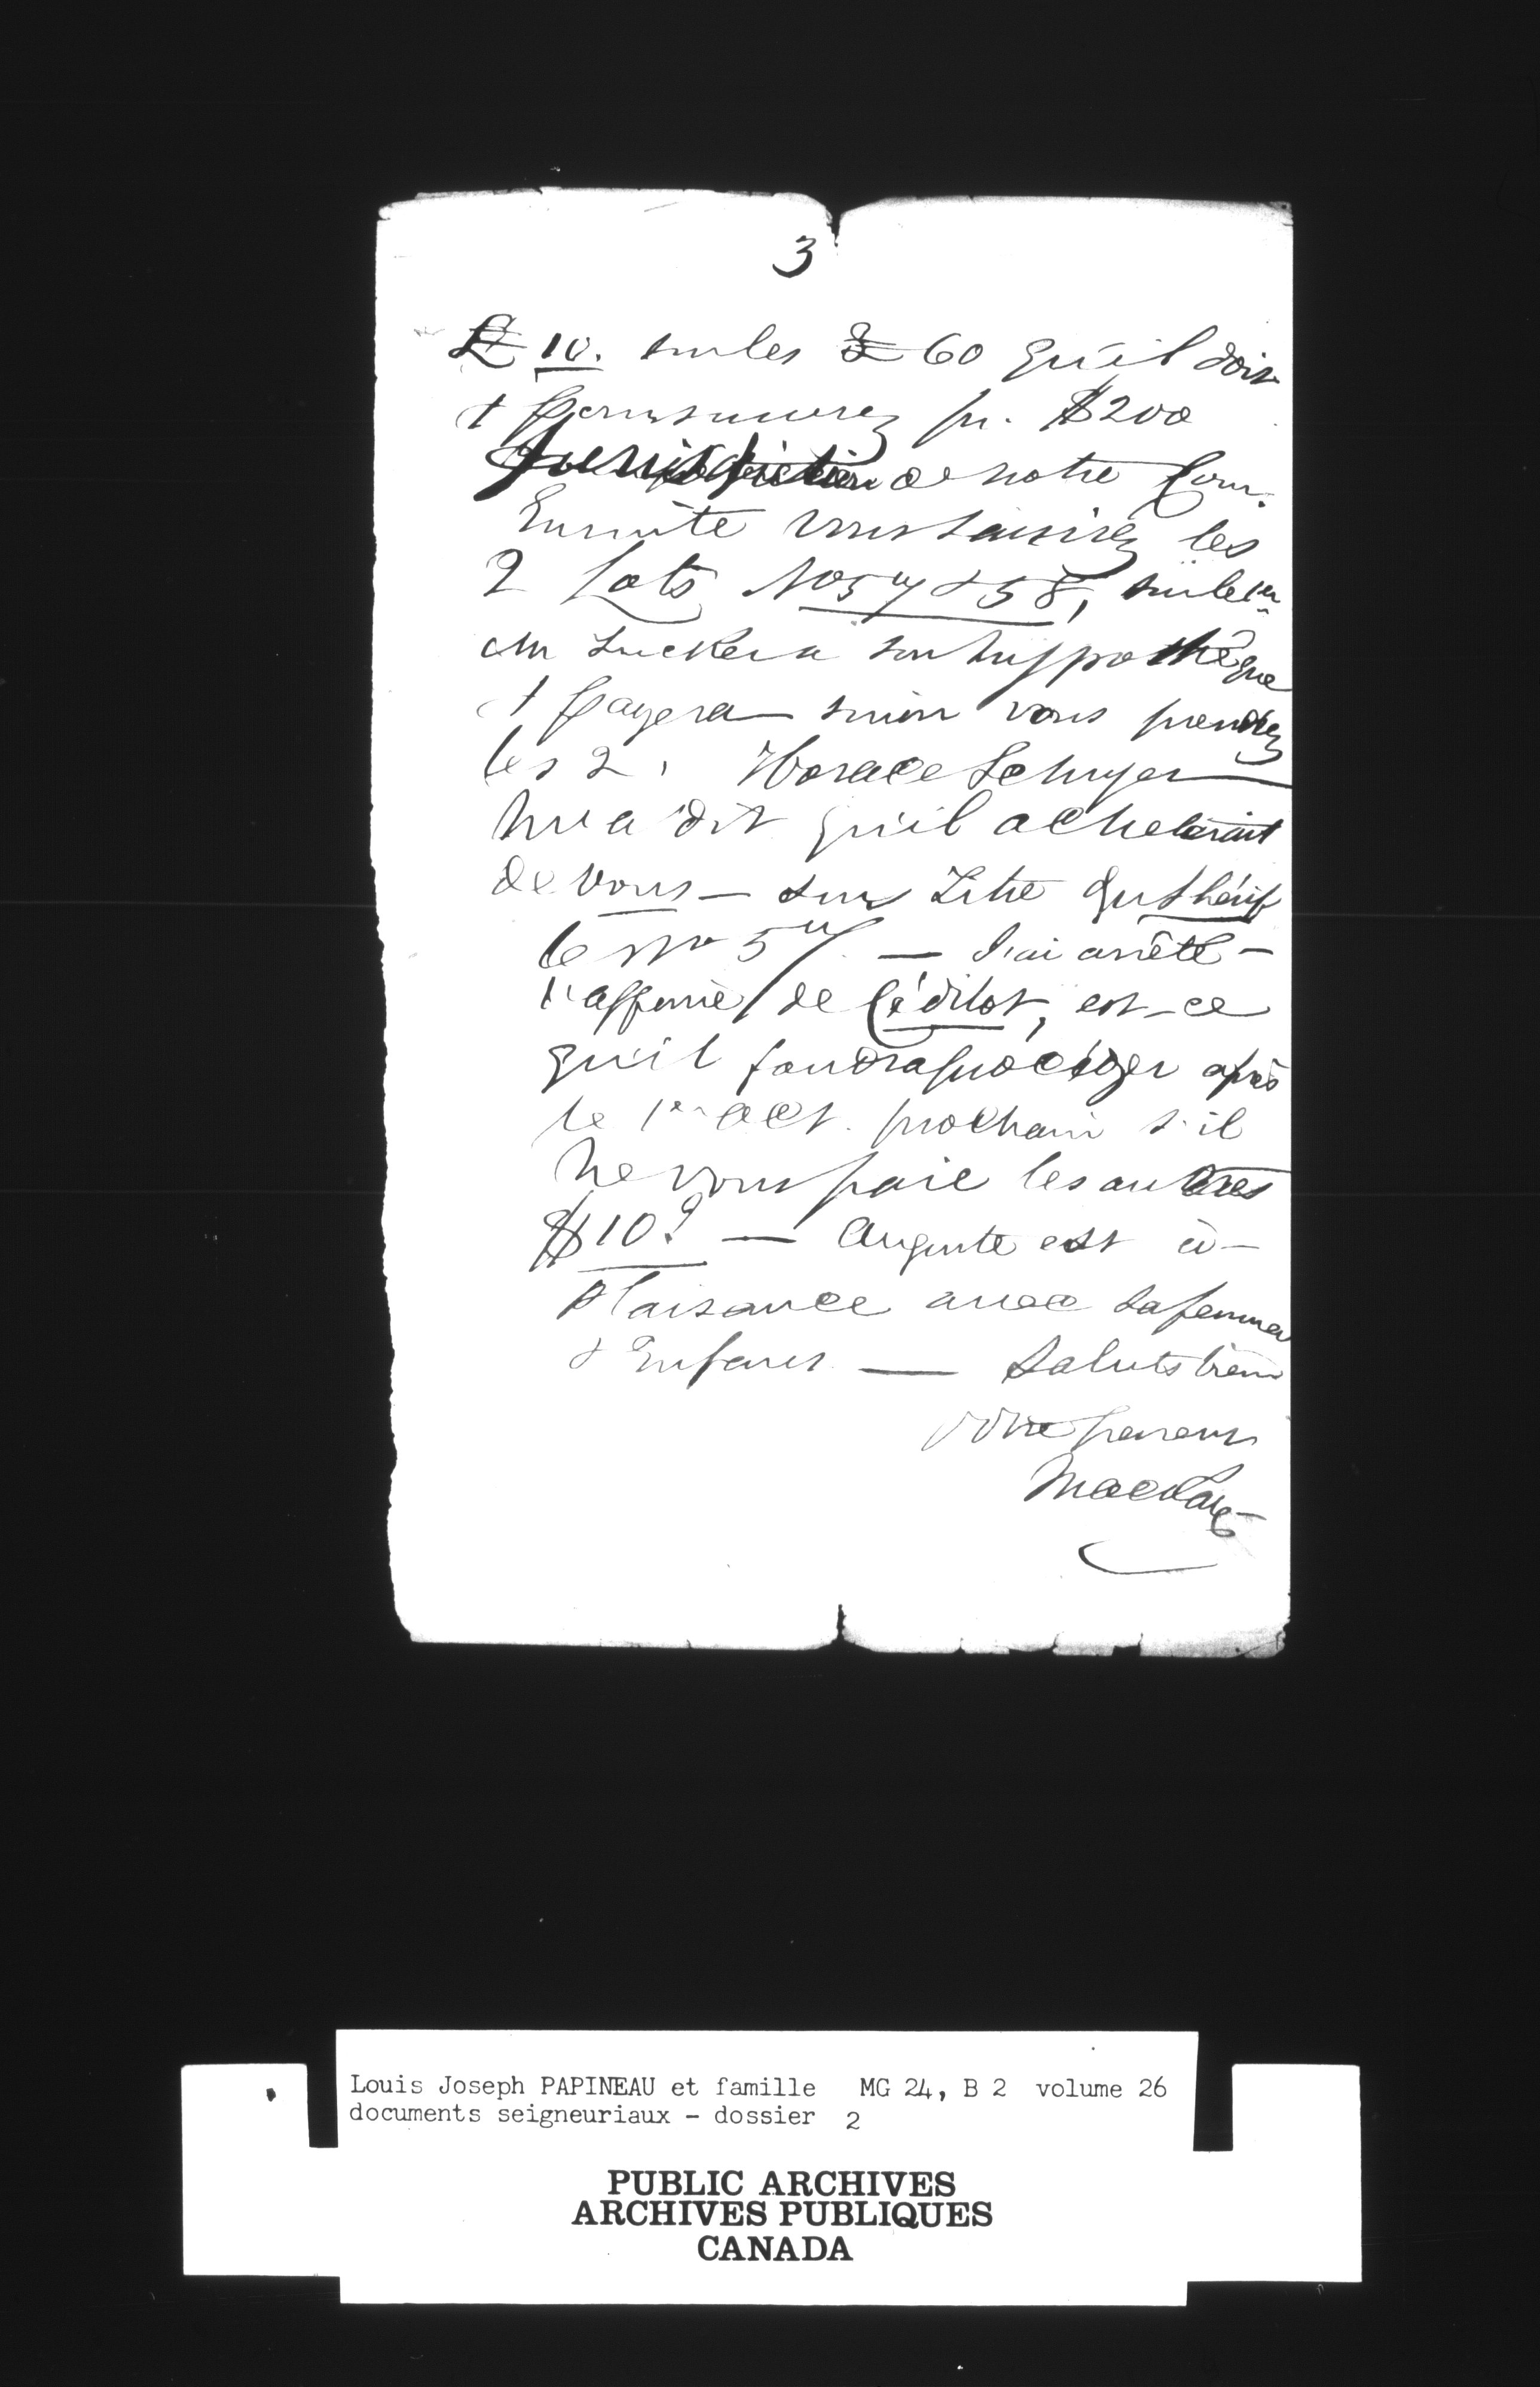 3
£ 10. sur les £ 60 qu'il doit
& poursuivrez pr. $200
Jurisdiction de notre Cour.
Ensuite vous saisirez les
2 Lots No 57 & 58, sur le 1er
on son hypothèque
& payera sinon vous prendrez
les 2. Horace Schryer
m'a dit qu'il achèterait
de vous — sur Titre du Shérif
le No 57. — J'ai arrêté —
l'affaire de Cédilot, est-ce
qu'il faudra procéder après
le 1er Oct. prochain s'il
ne vous paie les autres
$10? — Auguste est à —
Plaisance avec sa femme
& Enfans. — Saluts bien
Votre parent
Mackay
Louis Joseph PAPINEAU et famille MG 24, B 2 volume 26
documents seigneuriaux - dossier 2
PUBLIC ARCHIVES
ARCHIVES PUBLIQUES
CANADA